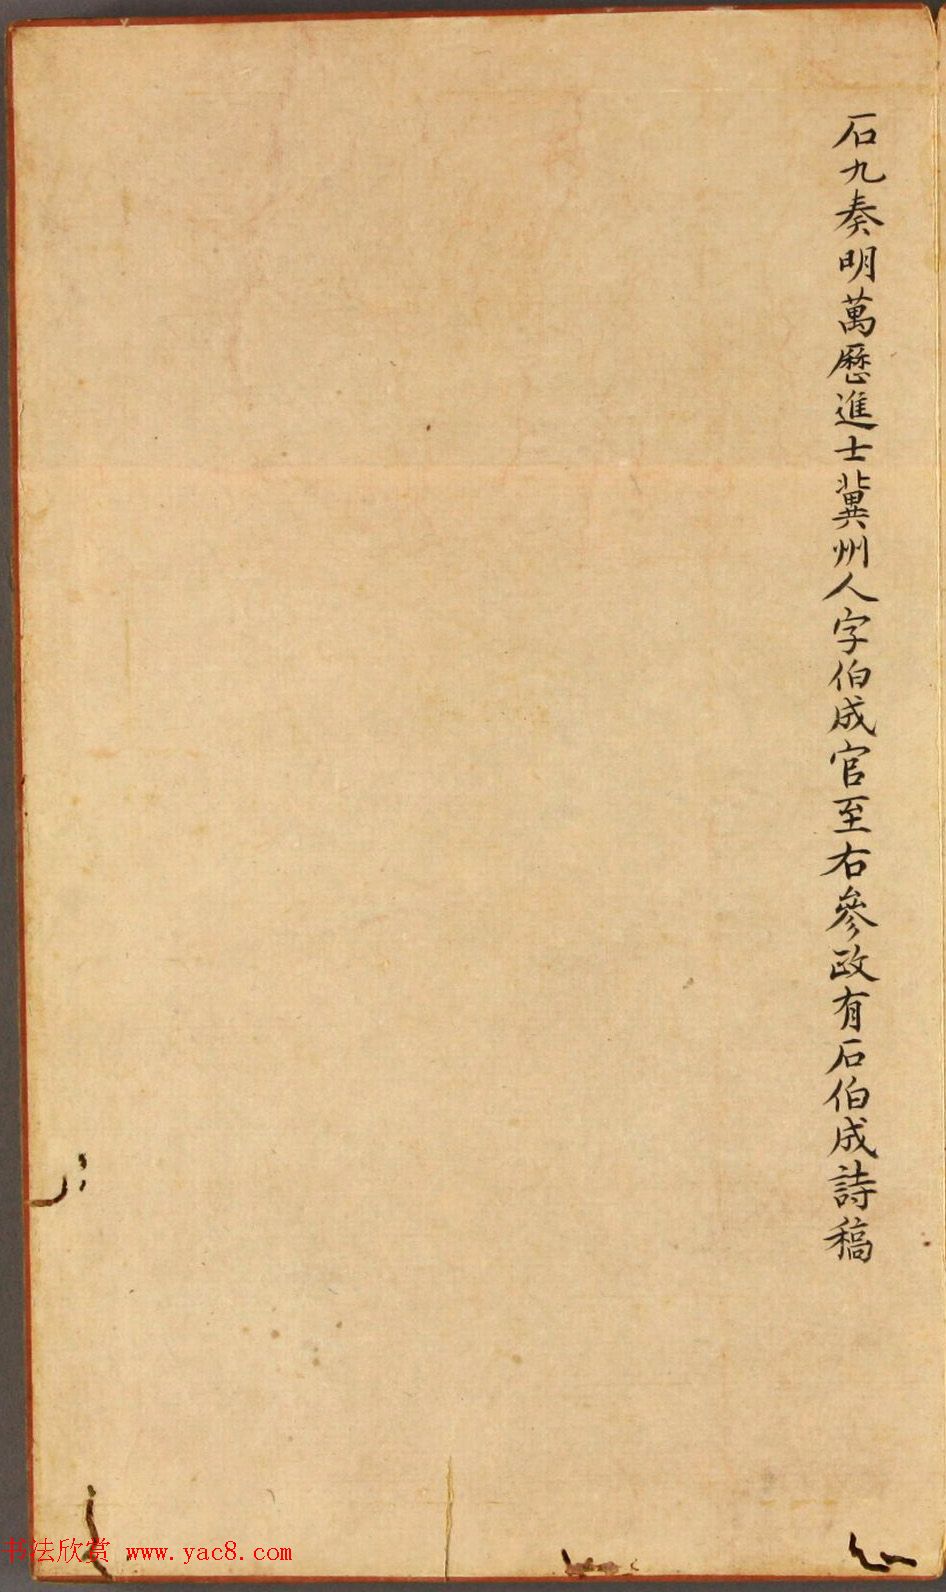 石九奏明萬歷進士冀州人字伯成官至右參政有石伯成詩稿
书法欣赏 www.yac8.com